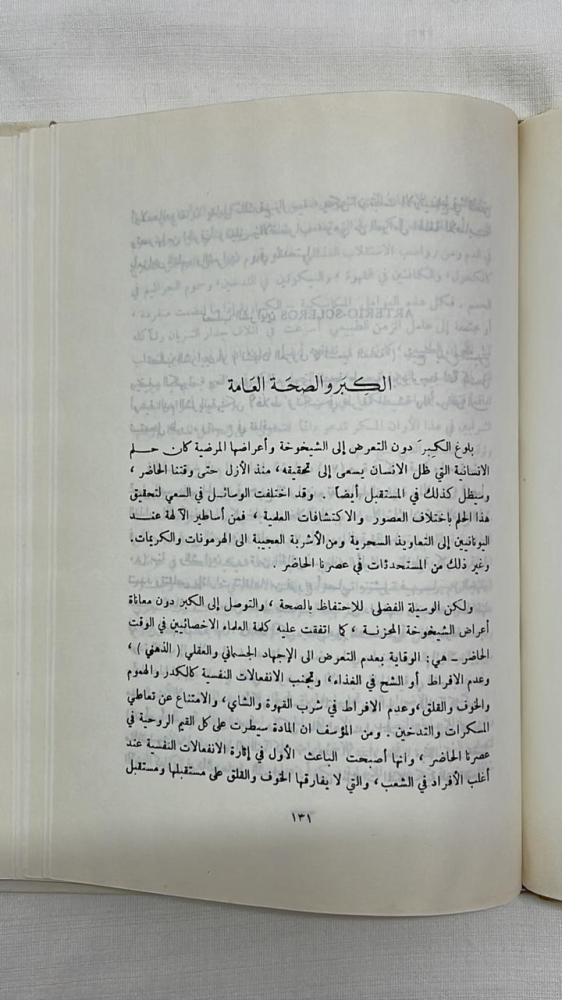 الكبَر والصحَة العَامة
بلوغ الكبَر دون التعرض إلى الشيخوخة وأعراضها المرضية كان حلم
الانسانية التي ظل الانسان يسعى إلى تحقيقه، منذ الأزل حتى وقتنا الحاضر،
وسيظل كذلك في المستقبل أيضاً. وقد اختلفت الوسائل في السعي لتحقيق
هذا الحلم باختلاف العصور والاكتشافات العلمية، فمن أساطير الآلهة عند
اليونانيين إلى التعاويذ السحرية ومن الأشربة العجيبة الى الهرمونات والكريمات.
وغير ذلك من المستحدثات في عصرنا الحاضر.
ولكن الوسيلة الفضلى للاحتفاظ بالصحة، والتوصل إلى الكبر دون معاناة
أعراض الشيخوخة المحزنة، كما اتفقت عليه كلمة العلماء الاخصائيين في الوقت
الحاضر – هي: الوقاية بعدم التعرض الى الإجهاد الجسماني والعقلي (الذهني)،
وعدم الافراط أو الشح في الغذاء، وتجنب الانفعالات النفسية كالكدر والهموم
والخوف والقلق، وعدم الافراط في شرب القهوة والشاي، والامتناع عن تعاطي
المسكرات والتدخين. ومن المؤسف ان المادة سيطرت على كل القيم الروحية في
عصرنا الحاضر، وانها أصبحت الباعث الأول في إثارة الانفعالات النفسية عند
أغلب الأفراد في الشعب، والتي لا يفارقها الخوف والقلق على مستقبلها ومستقبل
١٣١